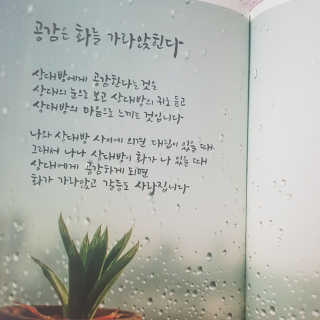 공감은 화를 가라앉힌다
상대방에게 공감한다는 것은
상대의 눈으로 보고 상대방의 귀로 듣고
상대방의 마음으로 느끼는 것입니다
나와 상대방 사이에 의견 대립이 있을 때,
그래서 나나 상대방이 화가 나 있을 때
상대에게 공감하게 되면
화가 가라앉고 갈등도 사라집니다